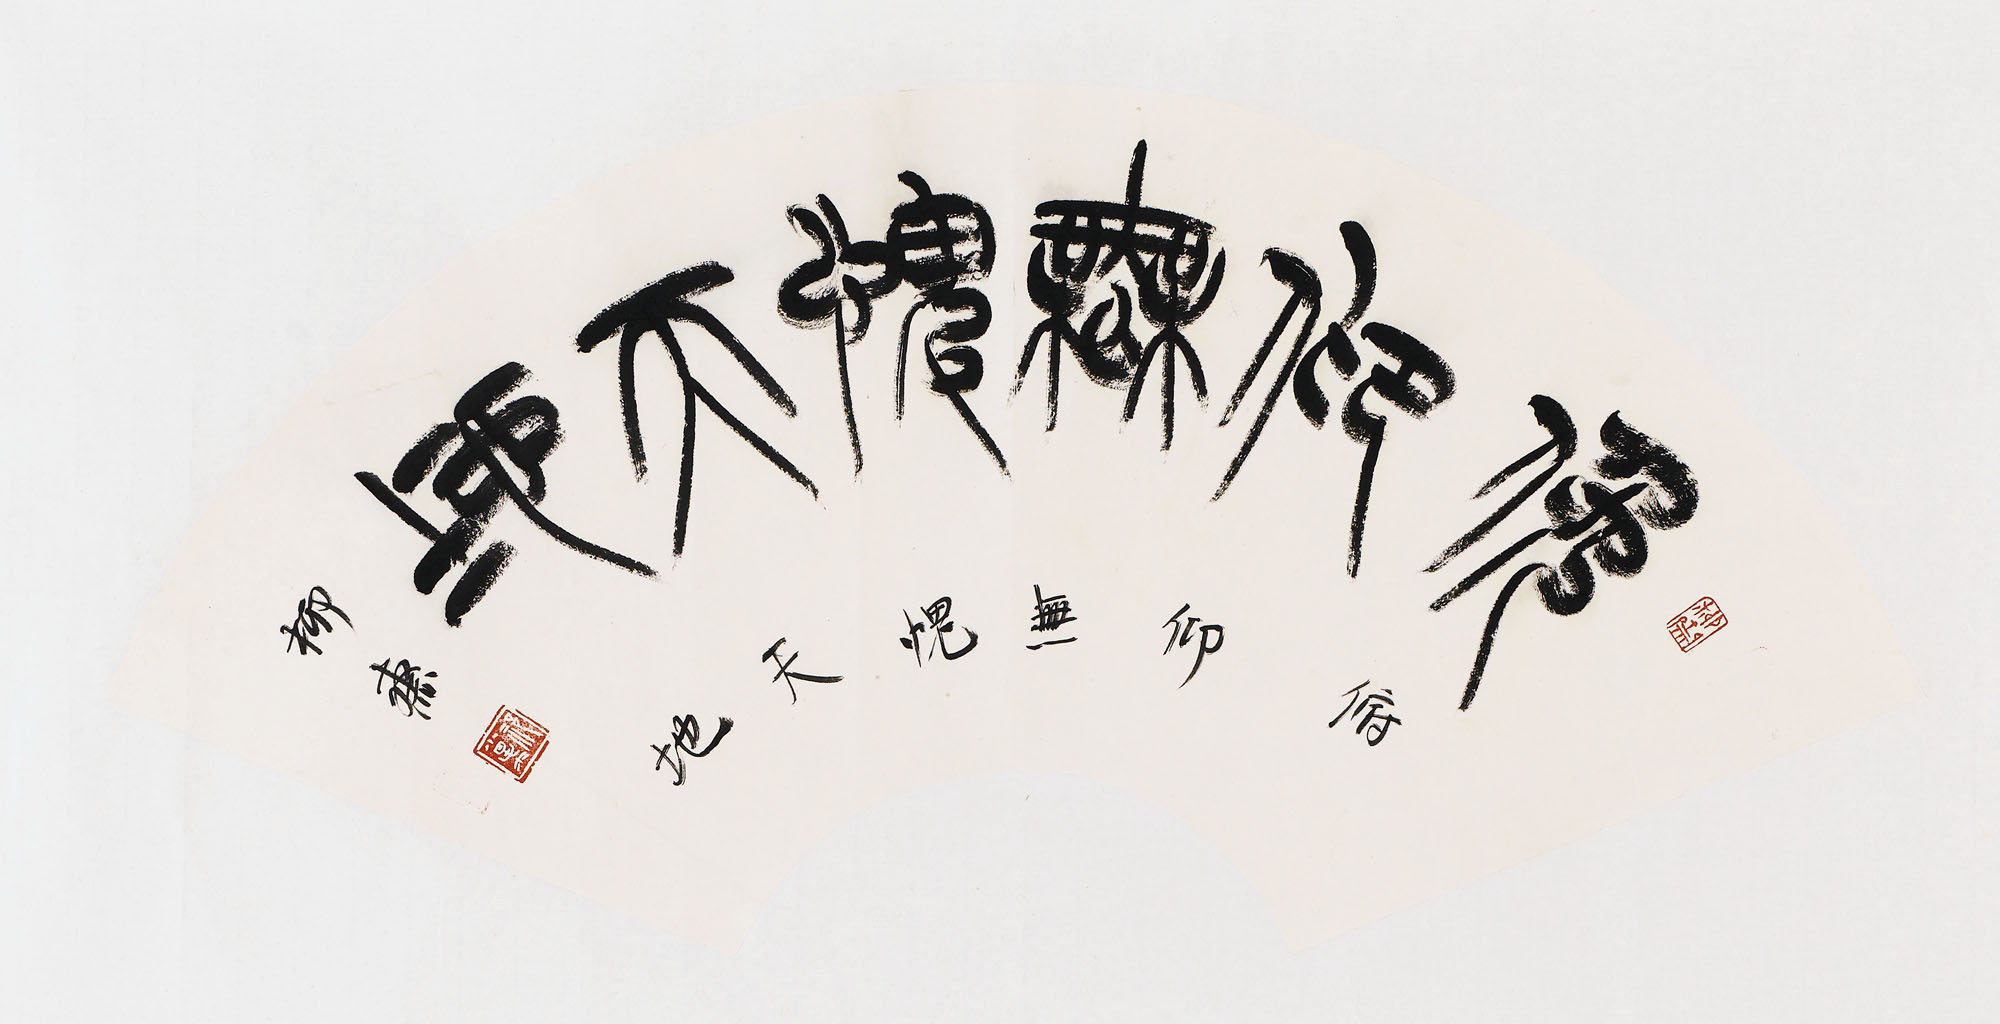 俯仰無愧天地
俯仰無愧天地
柳燕